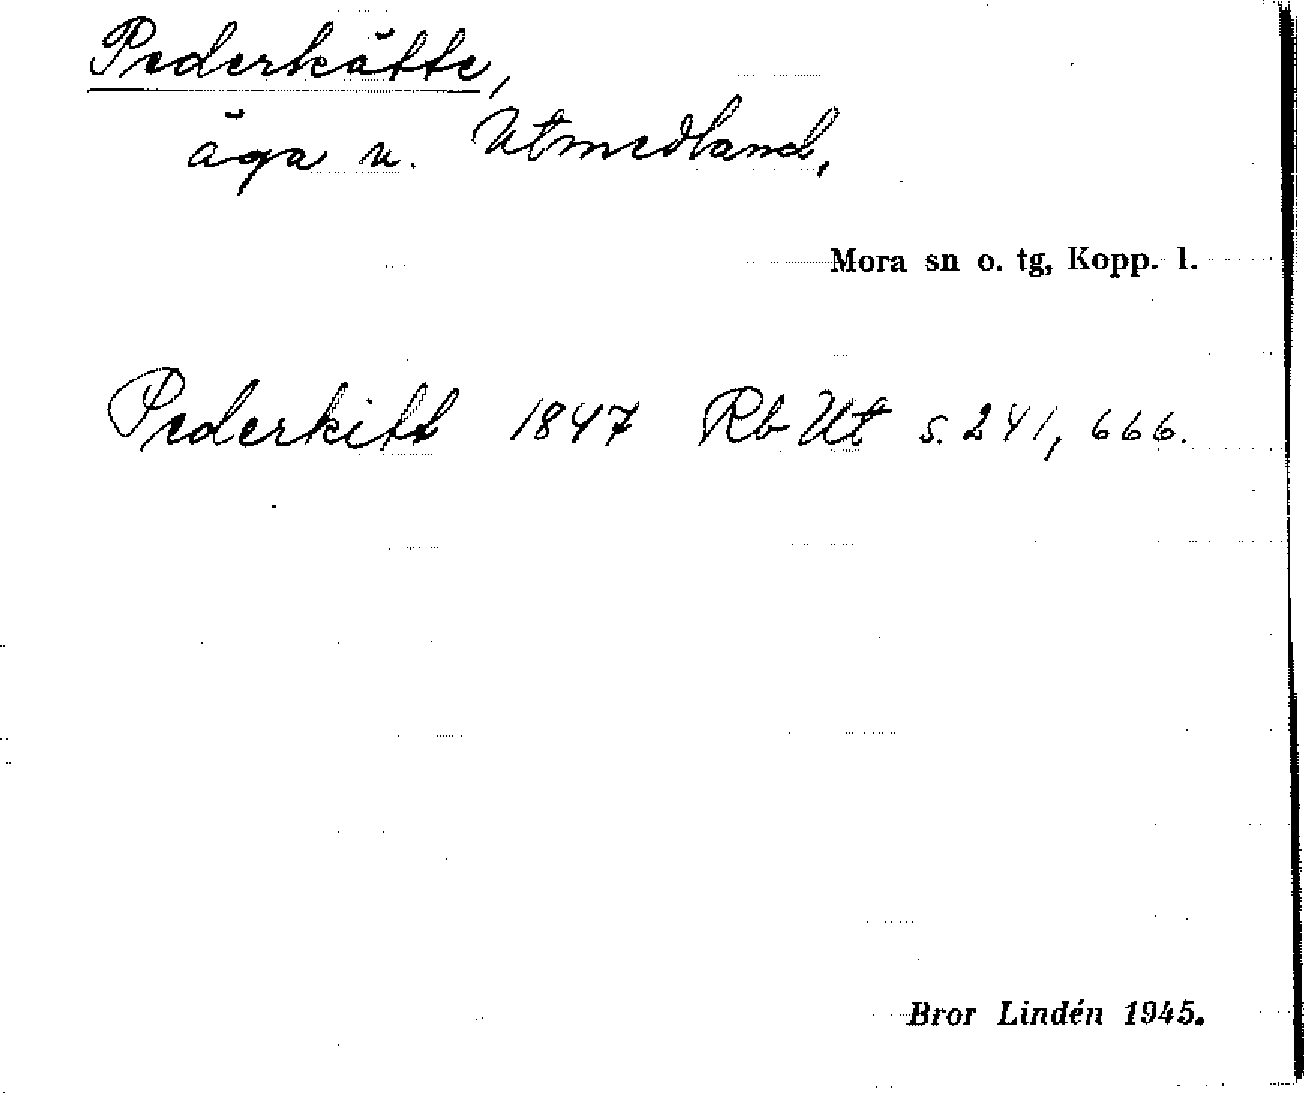 Pederkätte,
äga v. Utmedland,
Mora sn o. tg, Kopp. l.
Pederkitt 1847 Rb Ut s. 241, 666.
Bror Lindén 1945.